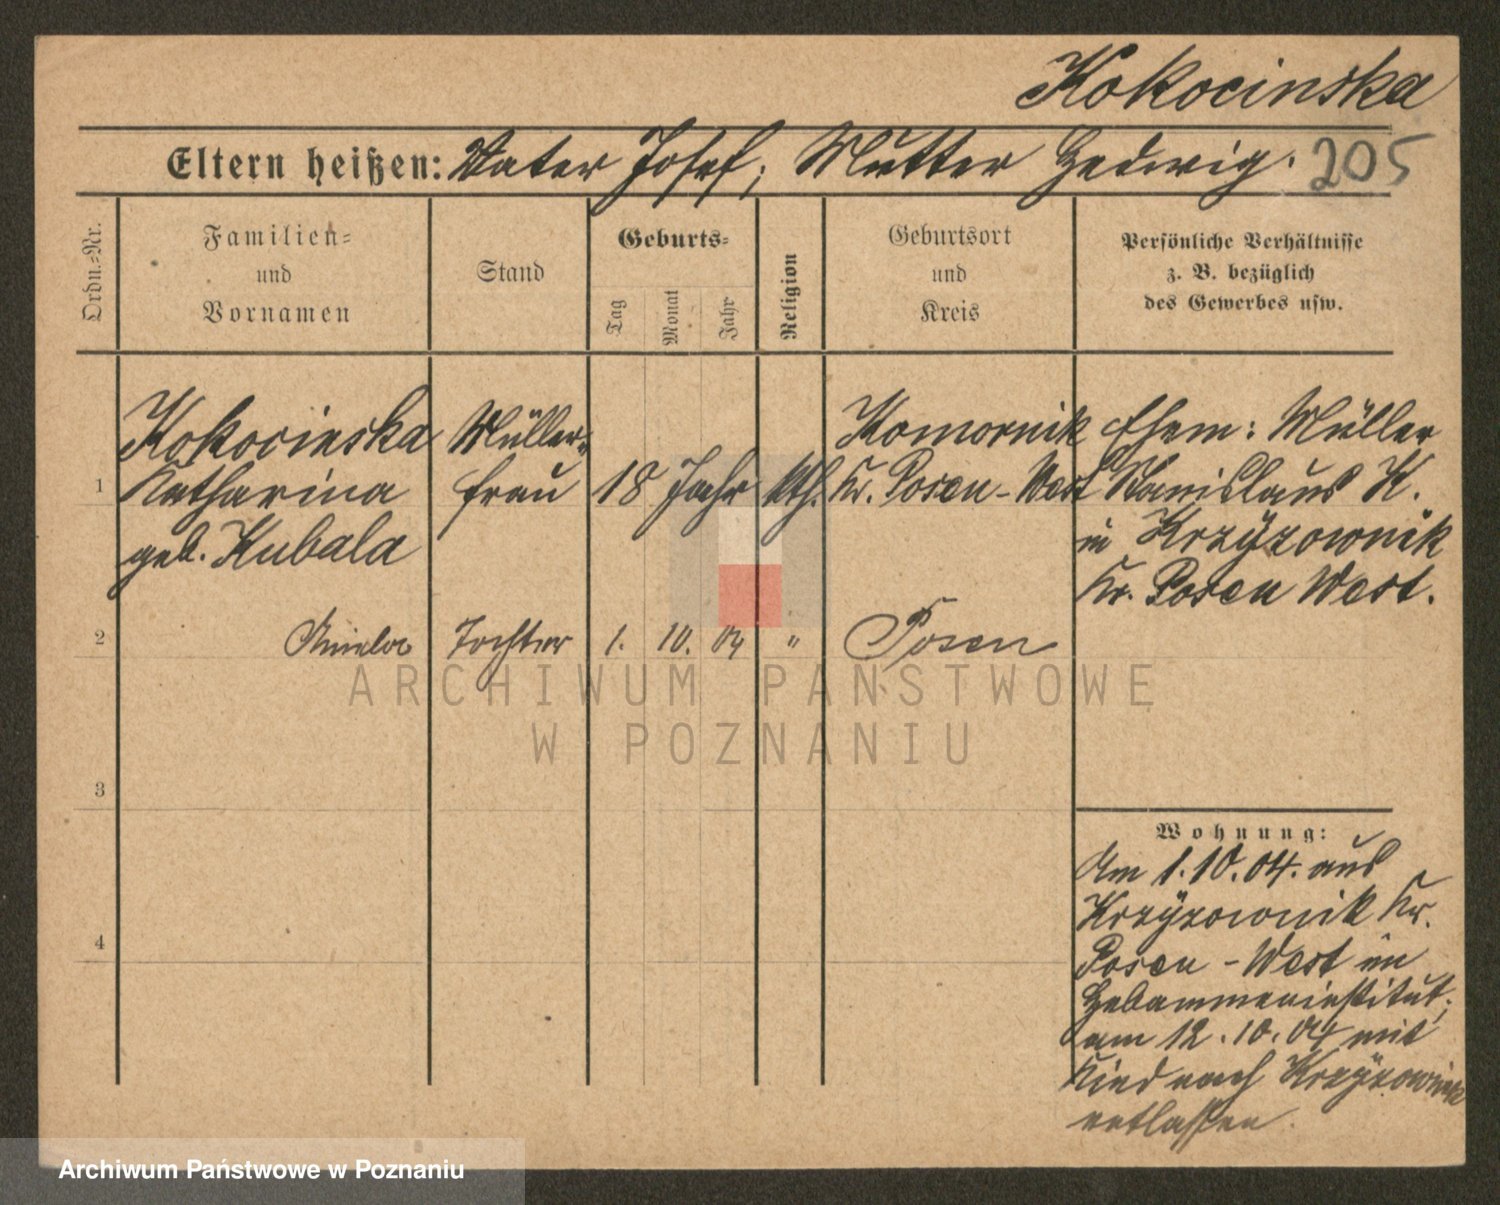 Kokocinska
Eltern heißen: Vater Josef; Mutter Hedwig. 205
Ordn.=Nr.
Familien=
und
Vornamen
Stand
Geburts=
Tag
Monat
Jahr
Religion
Geburtsort
und
Kreis
Persönliche Verhältnisse
z. B. bezüglich
des Gewerbes usw.
Kokocinska Müller= Komornik Ehem: Müller
1 Katharina frau 18 Jahr kth. Kr. Posen-West Stanislaus K.
geb. Kubala in Krzyzownik
Kr. Posen West.
2 Aniela Tochter 1. 10. 04 " Posen
ARCHIWUM PAŃSTWOWE
W POZNANIU
3
Wohnung:
Am 1.10.04. aus
Krzyzownik Kr.
4
Posen-West im
Hebammeninstitut;
am 12.10.04 mit
Kind nach Krzyzownik
entlassen.
Archiwum Państwowe w Poznaniu